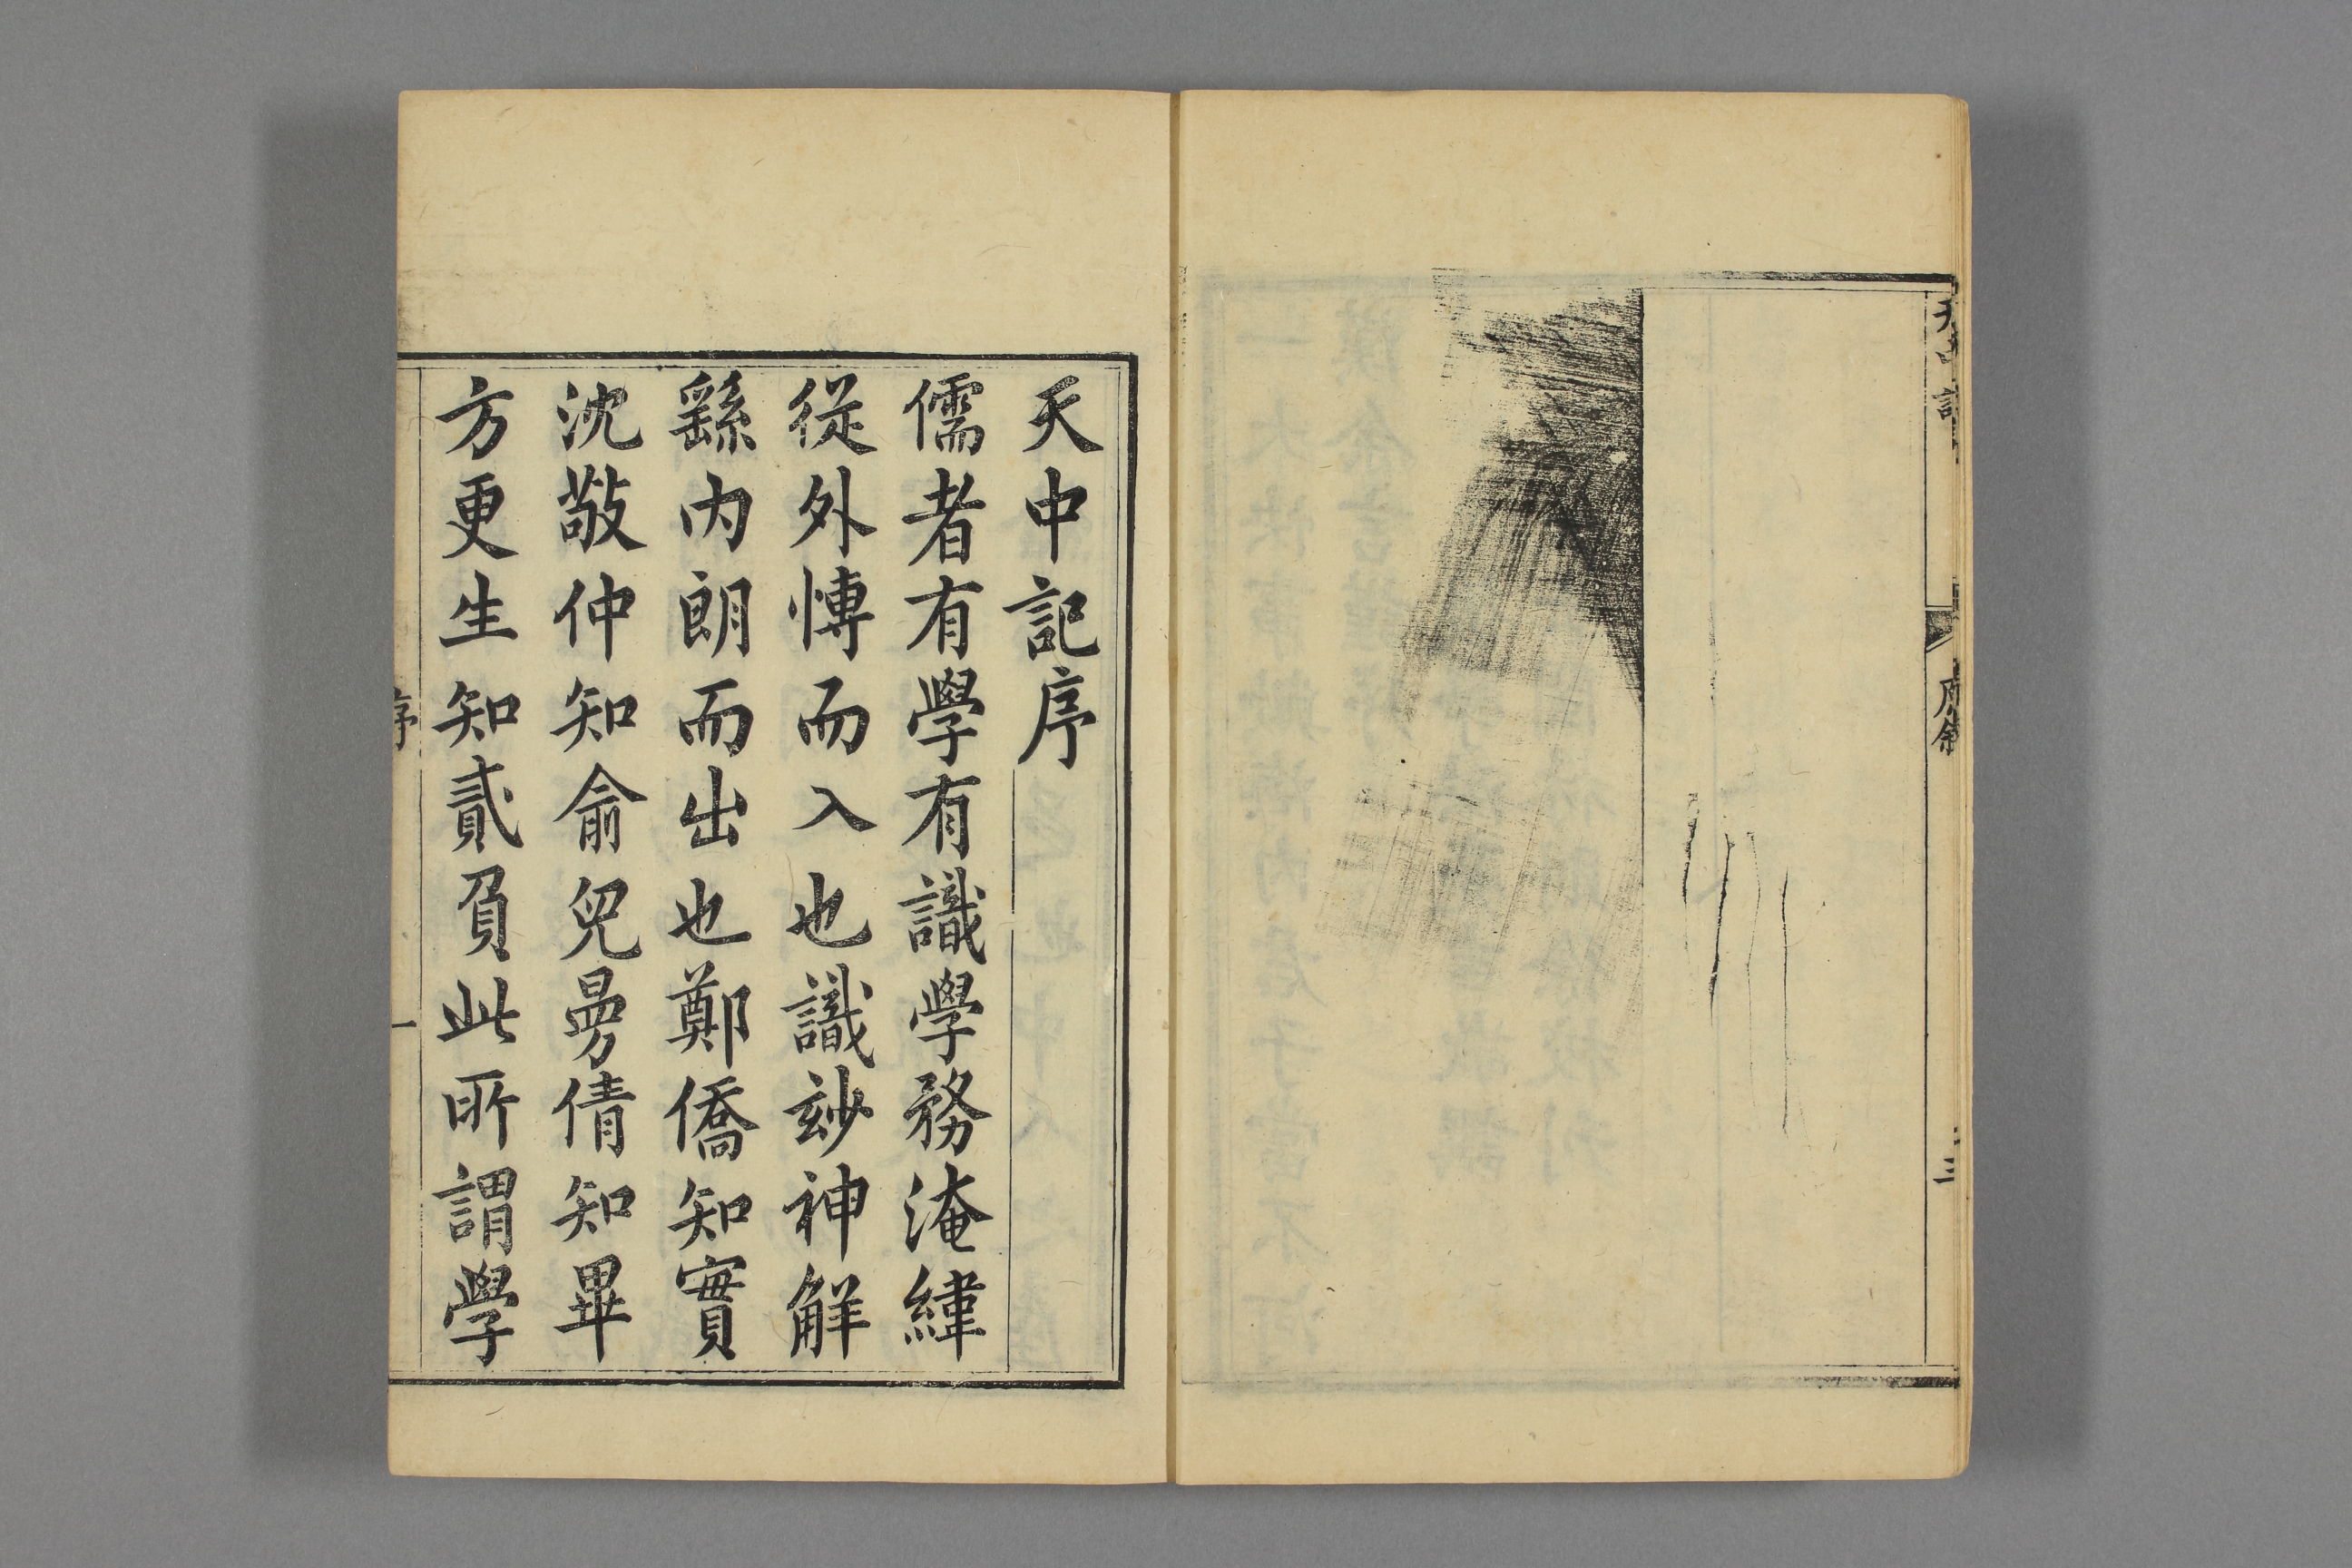 天中記
序
三
天中記序
儒者有學有識學務淹緯
從外愽而入也識玅神觧
繇内朗而出也鄭僑知實
沈敼仲知俞兒曼倩知畢
方更生知貳負此所謂學
序
一